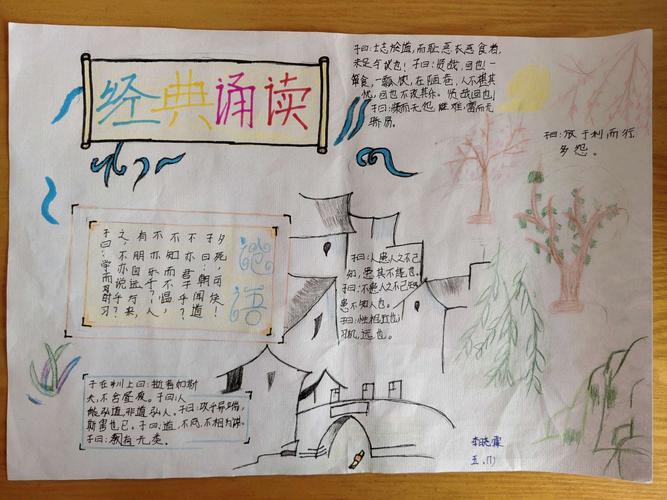 经典诵读
子曰:士志於道,而耻恶衣恶食者,
未足与议也!子曰:贤哉,回也!一
箪食,一瓢饮,在陋巷,人不堪其
忧,回也不改其乐。贤哉回也!
子曰:贫而无怨难,富而无
骄易。
子曰:放于利而行,
多怨。
论语
子曰:学而时习
之,不亦说乎?
有朋自远方来,
不亦乐乎?人
不知而不愠,
不亦君子乎?
子曰:朝闻道
夕死,可矣!
子曰:不患人之不己
知,患其不能也。
子曰:不患人之不己知
患不知人也。
子曰:性相近也
习相,远也。
子在川上曰:逝者如斯
夫,不舍昼夜。子曰:人
能弘道,非道弘人。子曰:攻乎异端,
斯害也已。子曰:道,不同,不相为谋。
子曰:有教无类。
五.(1)